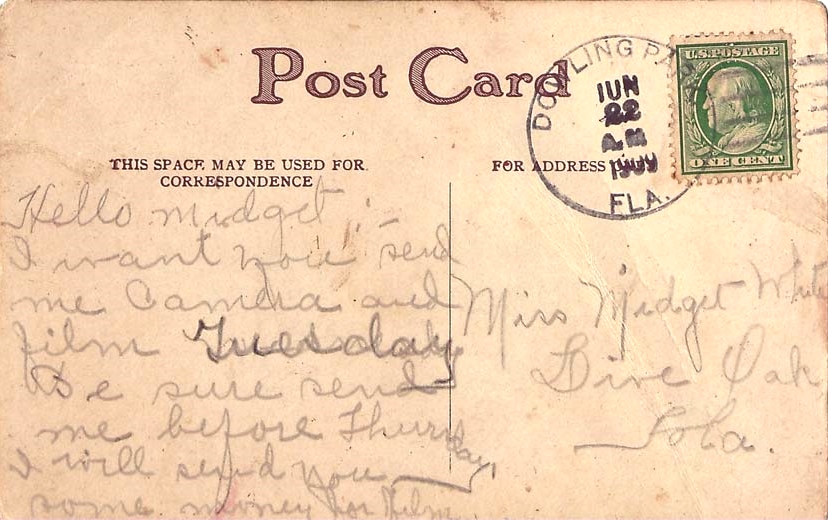 Post Card
THIS SPACE MAY BE USED FOR
CORRESPONDENCE
FOR ADDRESS
DOWLING PA
JUN
22
1909
FLA.
U.S. POSTAGE
ONE CENT
Hello Midget:—
I want you send
me Camera and
film Tuesday
Be sure send
me before Thursday,
I will send you
some money for film
Miss Midget White
Live Oak
Fla.